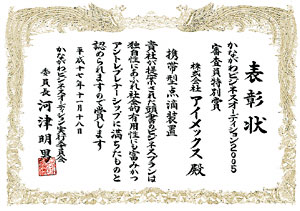 表彰状
かながわビジネスオーディション2005
審査員特別賞
株式会社アイメックス殿
携帯型点滴装置
貴社が提案された頭書のビジネスプランは
独自性にあふれ社会的有用性にも富みかつ
アントレプレナーシップに満ちたものと
認められますので賞します
平成十七年十一月十八日
かながわビジネスオーディション実行委員会
委員長 河津明男